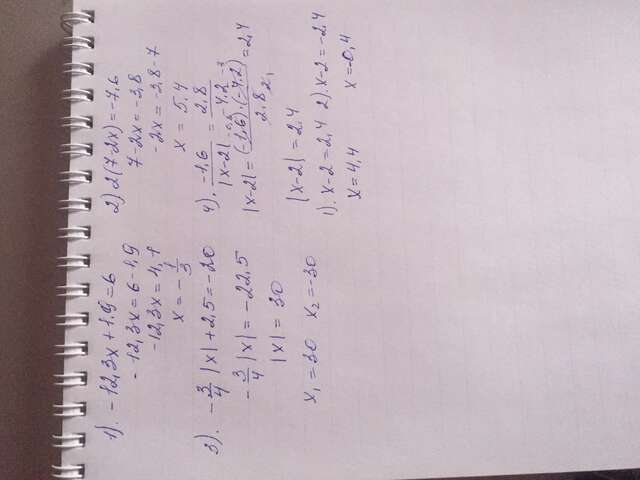 1). -12,3x+1,9=6
-12,3x=6-1,9
-12,3x=4,1
x=-1/3
2) 2(7-2x)=-7,6
7-2x=-3,8
-2x=-3,8-7
x=5,4
3). -3/4 |x|+2,5=-20
-3/4 |x|=-22,5
|x|=30
x₁=30 x₂=-30
4). -1,6/|x-2|=2,8/
|x-2|=(-1,6)·(-4,2)/2,8=2,4
|x-2|=2,4
1). x-2=2,4 2). x-2=-2,4
x=4,4 x=-0,4